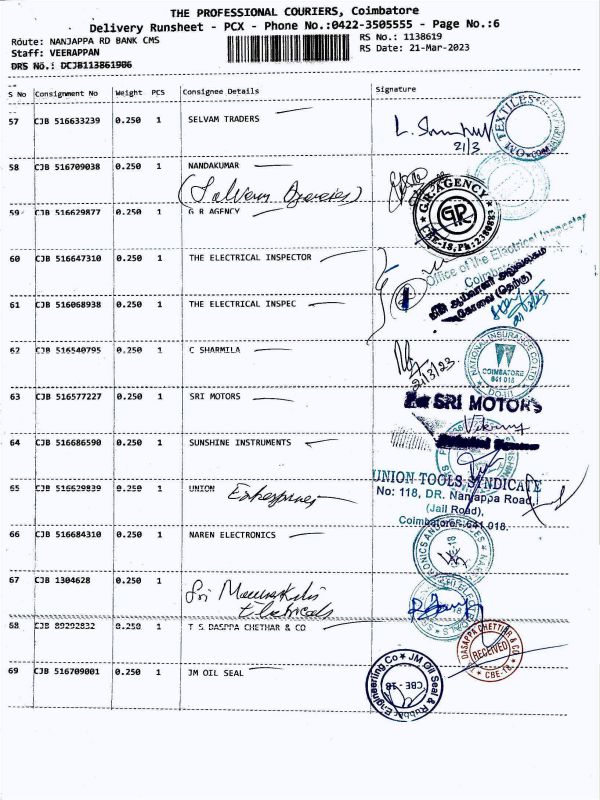 THE PROFESSIONAL COURIERS, Coimbatore
Delivery Runsheet - PCX - Phone No.:0422-3505555 - Page No.:6
Route: NANJAPPA RD BANK CMS
RS No.: 1138619
Staff: VEERAPPAN
RS Date: 21-Mar-2023
DRS No.: DCJB113861906
S No Consignment No Weight PCS Consignee Details Signature
57 CJB 516633239 0.250 1 SELVAM TRADERS
TEXTILES
21/3
58 CJB 516709038 0.250 1 NANDAKUMAR
59 CJB 516629877 0.250 1 G R AGENCY
G.R.AGENCY
GR
CBE-18, Ph:2380883
60 CJB 516647310 0.250 1 THE ELECTRICAL INSPECTOR
Office of the Electrical Inspector
61 CJB 516068938 0.250 1 THE ELECTRICAL INSPEC
62 CJB 516540795 0.250 1 C SHARMILA
21/3/23
NATIONAL INSURANCE CO LTD
COIMBATORE
641 018
63 CJB 516577227 0.250 1 SRI MOTORS
For SRI MOTORS
64 CJB 516686590 0.250 1 SUNSHINE INSTRUMENTS
65 CJB 516629839 0.250 1 UNION Enterprises
UNION TOOLS SYNDICATE
No: 118, DR. Nanjappa Road,
(Jail Road),
Coimbatore-641 018.
66 CJB 516684310 0.250 1 NAREN ELECTRONICS
67 CJB 1304628 0.250 1
Electricals
68 CJB 89292832 0.250 1 T S DASPPA CHETHAR & CO
DASAPPA CHETTIAR & CO
RECEIVED
CBE-18
69 CJB 516709001 0.250 1 JM OIL SEAL
JM Oil Seal & Rubber Engineering Co
CBE - 18